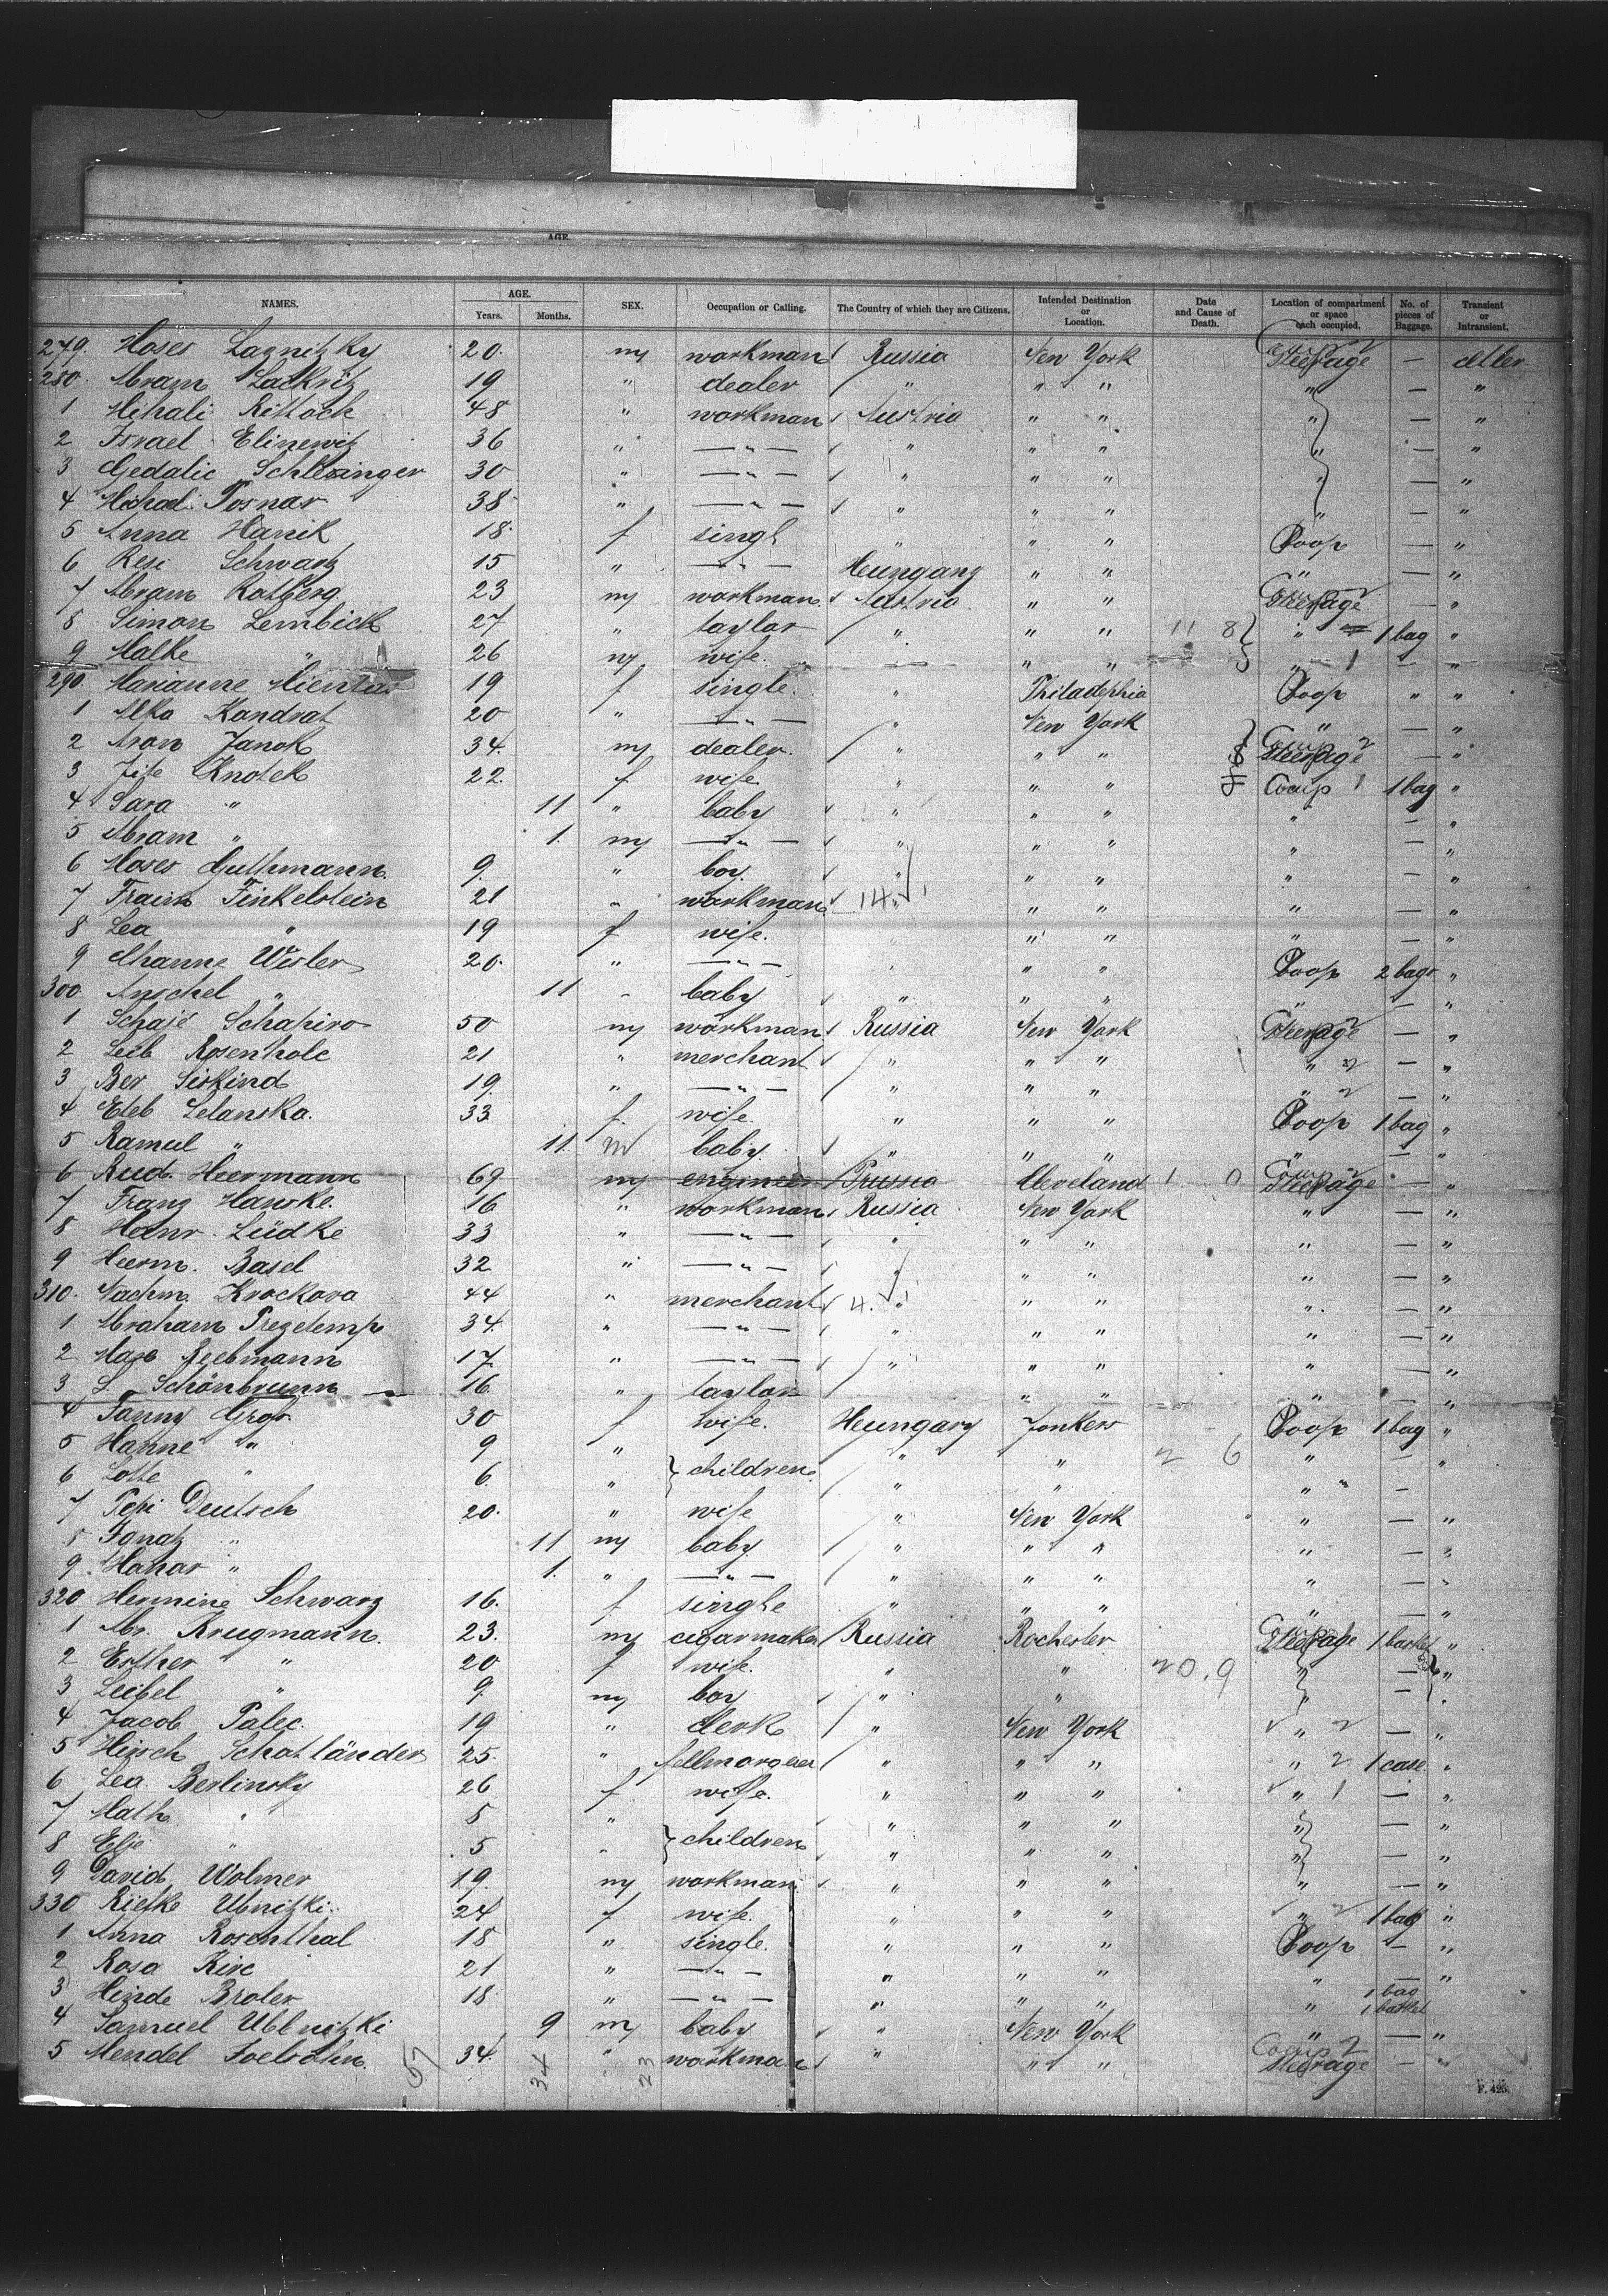 AGE.
NAMES. AGE. Years. Months. SEX. Occupation or Calling. The Country of which they are Citizens. Intended Destination or Location. Date and Cause of Death. Location of compartment or space each occupied. No. of pieces of Baggage. Transient or Intransient.
279. Moses Lasnitzky 20. m workman Russia New York Steerage —
280. Abram Lackritz 19 " dealer " " " " — "
1 Mihali Rittoch 48 " workman Austria " " " — "
2 Israel Elinewitz 36 " — " — " " " " — "
3 Gedalie Schlesinger 30 " — " — " " " " — "
4 Posnar 38 " — " — " " " " — "
5 Anna Hanik 18. f singl " " " Poop — "
6 Resi Schwartz 15 " — " — Heungary " " " — "
7 Abram Rotberg 23 m workman Austria " " Steerage — "
8 Simon Lembick 27 " taylor " " " 11 8 " 1 bag "
9 Malke " 26 m wife. " " " " 1 — "
290. Marianne 19 f single. " Philadephia Poop " "
1 Kondrat 20 " — " — " New York " — "
2 Aron Janok 34. m dealer. " " " Coup 2 Steerage — "
3 Jite Knotek 22. f wife " " " Coup 1 1 bag "
4 Sara " 11 " baby " " " " "
5 Abram " 1. m — " — " " " " — "
6 Moses Guthmann 9. " boy. " " " " — "
7 Finkelstein 21 " workman 14. " " " " — "
8 Lea " 19 f wife. " " " — "
9 Wisler 20. " — " — " " Poop 2 bags "
300. Anschel " 11 " baby " " " " — "
1 Schaje Schapiro 50 m workman Russia New York Steerage — "
2 Leib Rosenholc 21 " merchant " " " " 2 — "
3 Ber Siskind 19. " — " — " " " " 2 — "
4 Eteb Lelanska. 33 f. wife. " " " Poop 1 bag "
5 Ramul " 11. m baby. " " " " — "
6 Rud. Heermann 69 m engineer Prussia Cleveland 1 0 Coup 2 Steerage — "
7 Franz Hanske. 16 " workman Russia New York " — "
8 Heinr. Lüdke 33 " — " — " " " " — "
9 Heerm. Basel 32 " — " — " " " " — "
310. Nachm. Krockova 44 " merchant 4. " " " " — "
1. Abraham Prezetemp 34. " — " — " " " " — "
2 Max Reebmann 17. " — " — " " " " — "
3 S. Schönbrunn 16. " taylor " " " — "
4 Fanny Grofs. 30 f wife. Heungary Jonkers Poop 1 bag "
5 Hanne " 9 " children " 2 6 " — "
6 Lotte " 6. " " " " —
7 Pepi Deutsch 20. " wife " New York " — "
8 Ignatz " 11 m baby. " " " " — "
9. " 1. " — " — " " " " — "
320 Hermine Schwarz 16. f single " " " " — "
1 Abr. Krugmann. 23. m cigarmaker Russia Rochester Steerage 1 basket "
2 Esther " 20 f wife. " " 20.9 " — "
3 Leibel " 9. m boy " " " — "
4 Jacob Palec. 19 " clerk " New York " 2 — "
5 Hirsch Schotländer 25. " " " " " 2 1 case "
6 Lea Berlinsky 26 f wife. " " " " 1 — "
7 " 5 " children " " " " — "
8 Elje " 5 " " " " " — "
9 David Wolmer 19. m workman " " " " — "
330 Riefke Ubnitzki. 24 f wife. " " " " 2 1 bag "
1 Anna Rosenthal 18 " single. " " " Poop — "
2 Rosa Kirc 21 " — " — " " " " — "
3 Hinde Broler 18 " — " — " " " " 1 bag 1 basket
4 Samuel Ubbnitzki 9 m baby " New York " — "
5 Mendel 34. " workman " " " Coup 2 Steerage — "
57 34 23
F. 425.